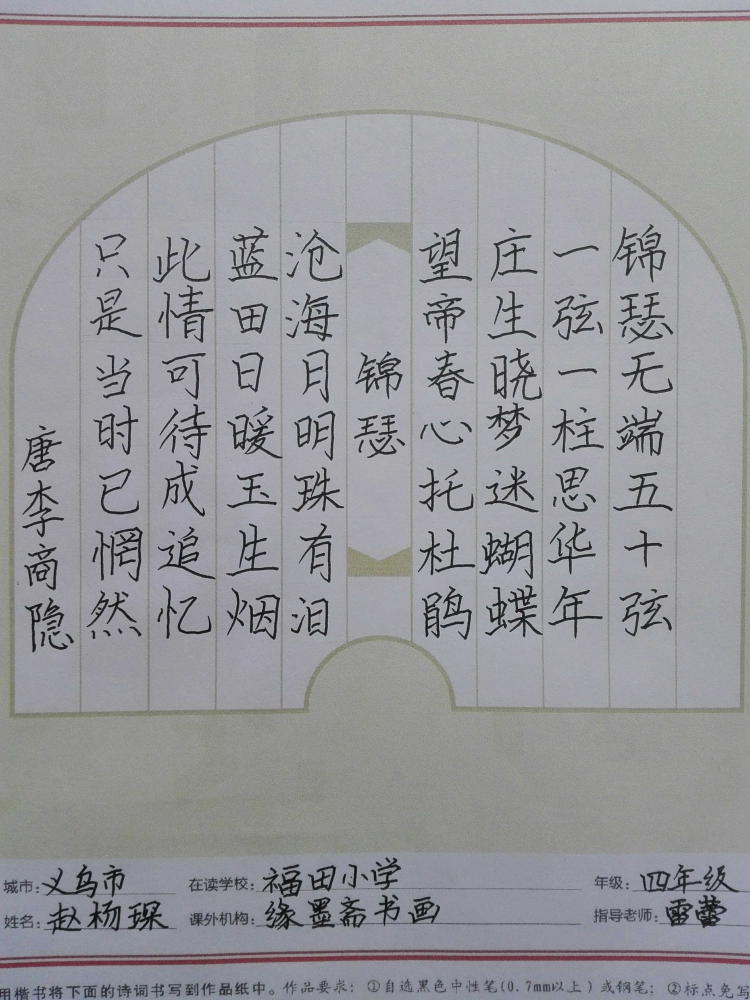 锦瑟无端五十弦
一弦一柱思华年
庄生晓梦迷蝴蝶
望帝春心托杜鹃
锦瑟
沧海月明珠有泪
蓝田日暖玉生烟
此情可待成追忆
只是当时已惘然
唐李商隐
城市：义乌市 在读学校：福田小学 年级：四年级
姓名：赵杨琛 课外机构：缘墨斋书画 指导老师：雷蕾
用楷书将下面的诗词书写到作品纸中。作品要求：①自选黑色中性笔(0.7mm以上)或钢笔；②标点免写